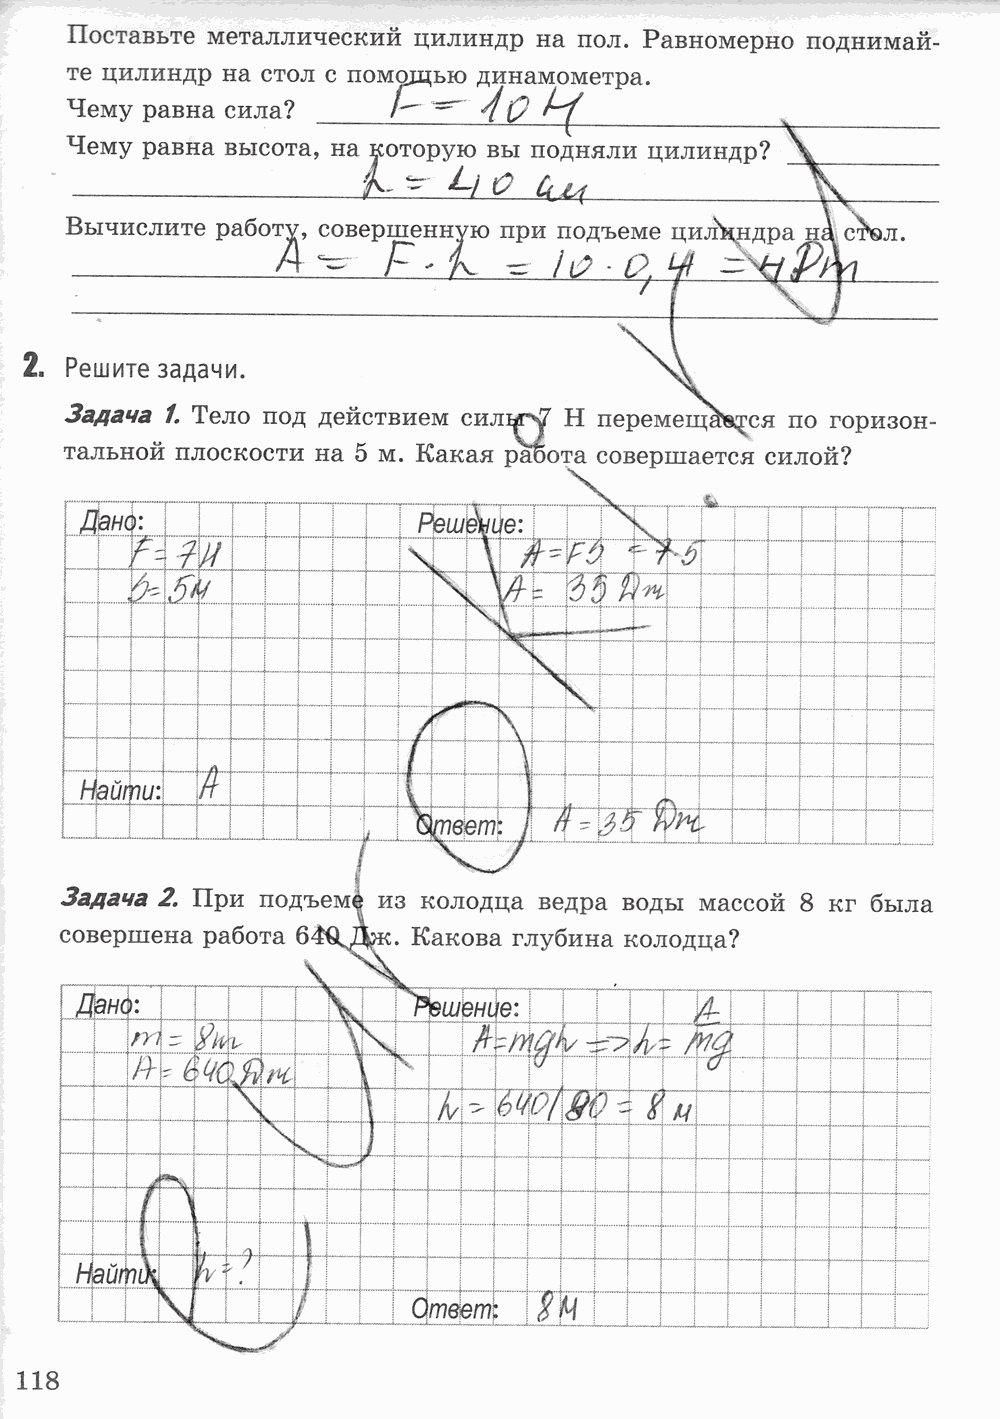 Поставьте металлический цилиндр на пол. Равномерно поднимай-
те цилиндр на стол с помощью динамометра.
Чему равна сила? F = 10 Н
Чему равна высота, на которую вы подняли цилиндр?
h = 40 см
Вычислите работу, совершенную при подъеме цилиндра на стол.
A = F · h = 10 · 0,4 = 4 Дж
2. Решите задачи.
Задача 1. Тело под действием силы 7 Н перемещается по горизон-
тальной плоскости на 5 м. Какая работа совершается силой?
Дано:
F = 7 Н
S = 5 м
Найти: A
Решение:
A = FS = 7 5
A = 35 Дж
Ответ: A = 35 Дж
Задача 2. При подъеме из колодца ведра воды массой 8 кг была
совершена работа 640 Дж. Какова глубина колодца?
Дано:
m = 8 кг
A = 640 Дж
Найти: h = ?
Решение:
A = mgh => h = A/mg
h = 640/80 = 8 м
Ответ: 8 м
118